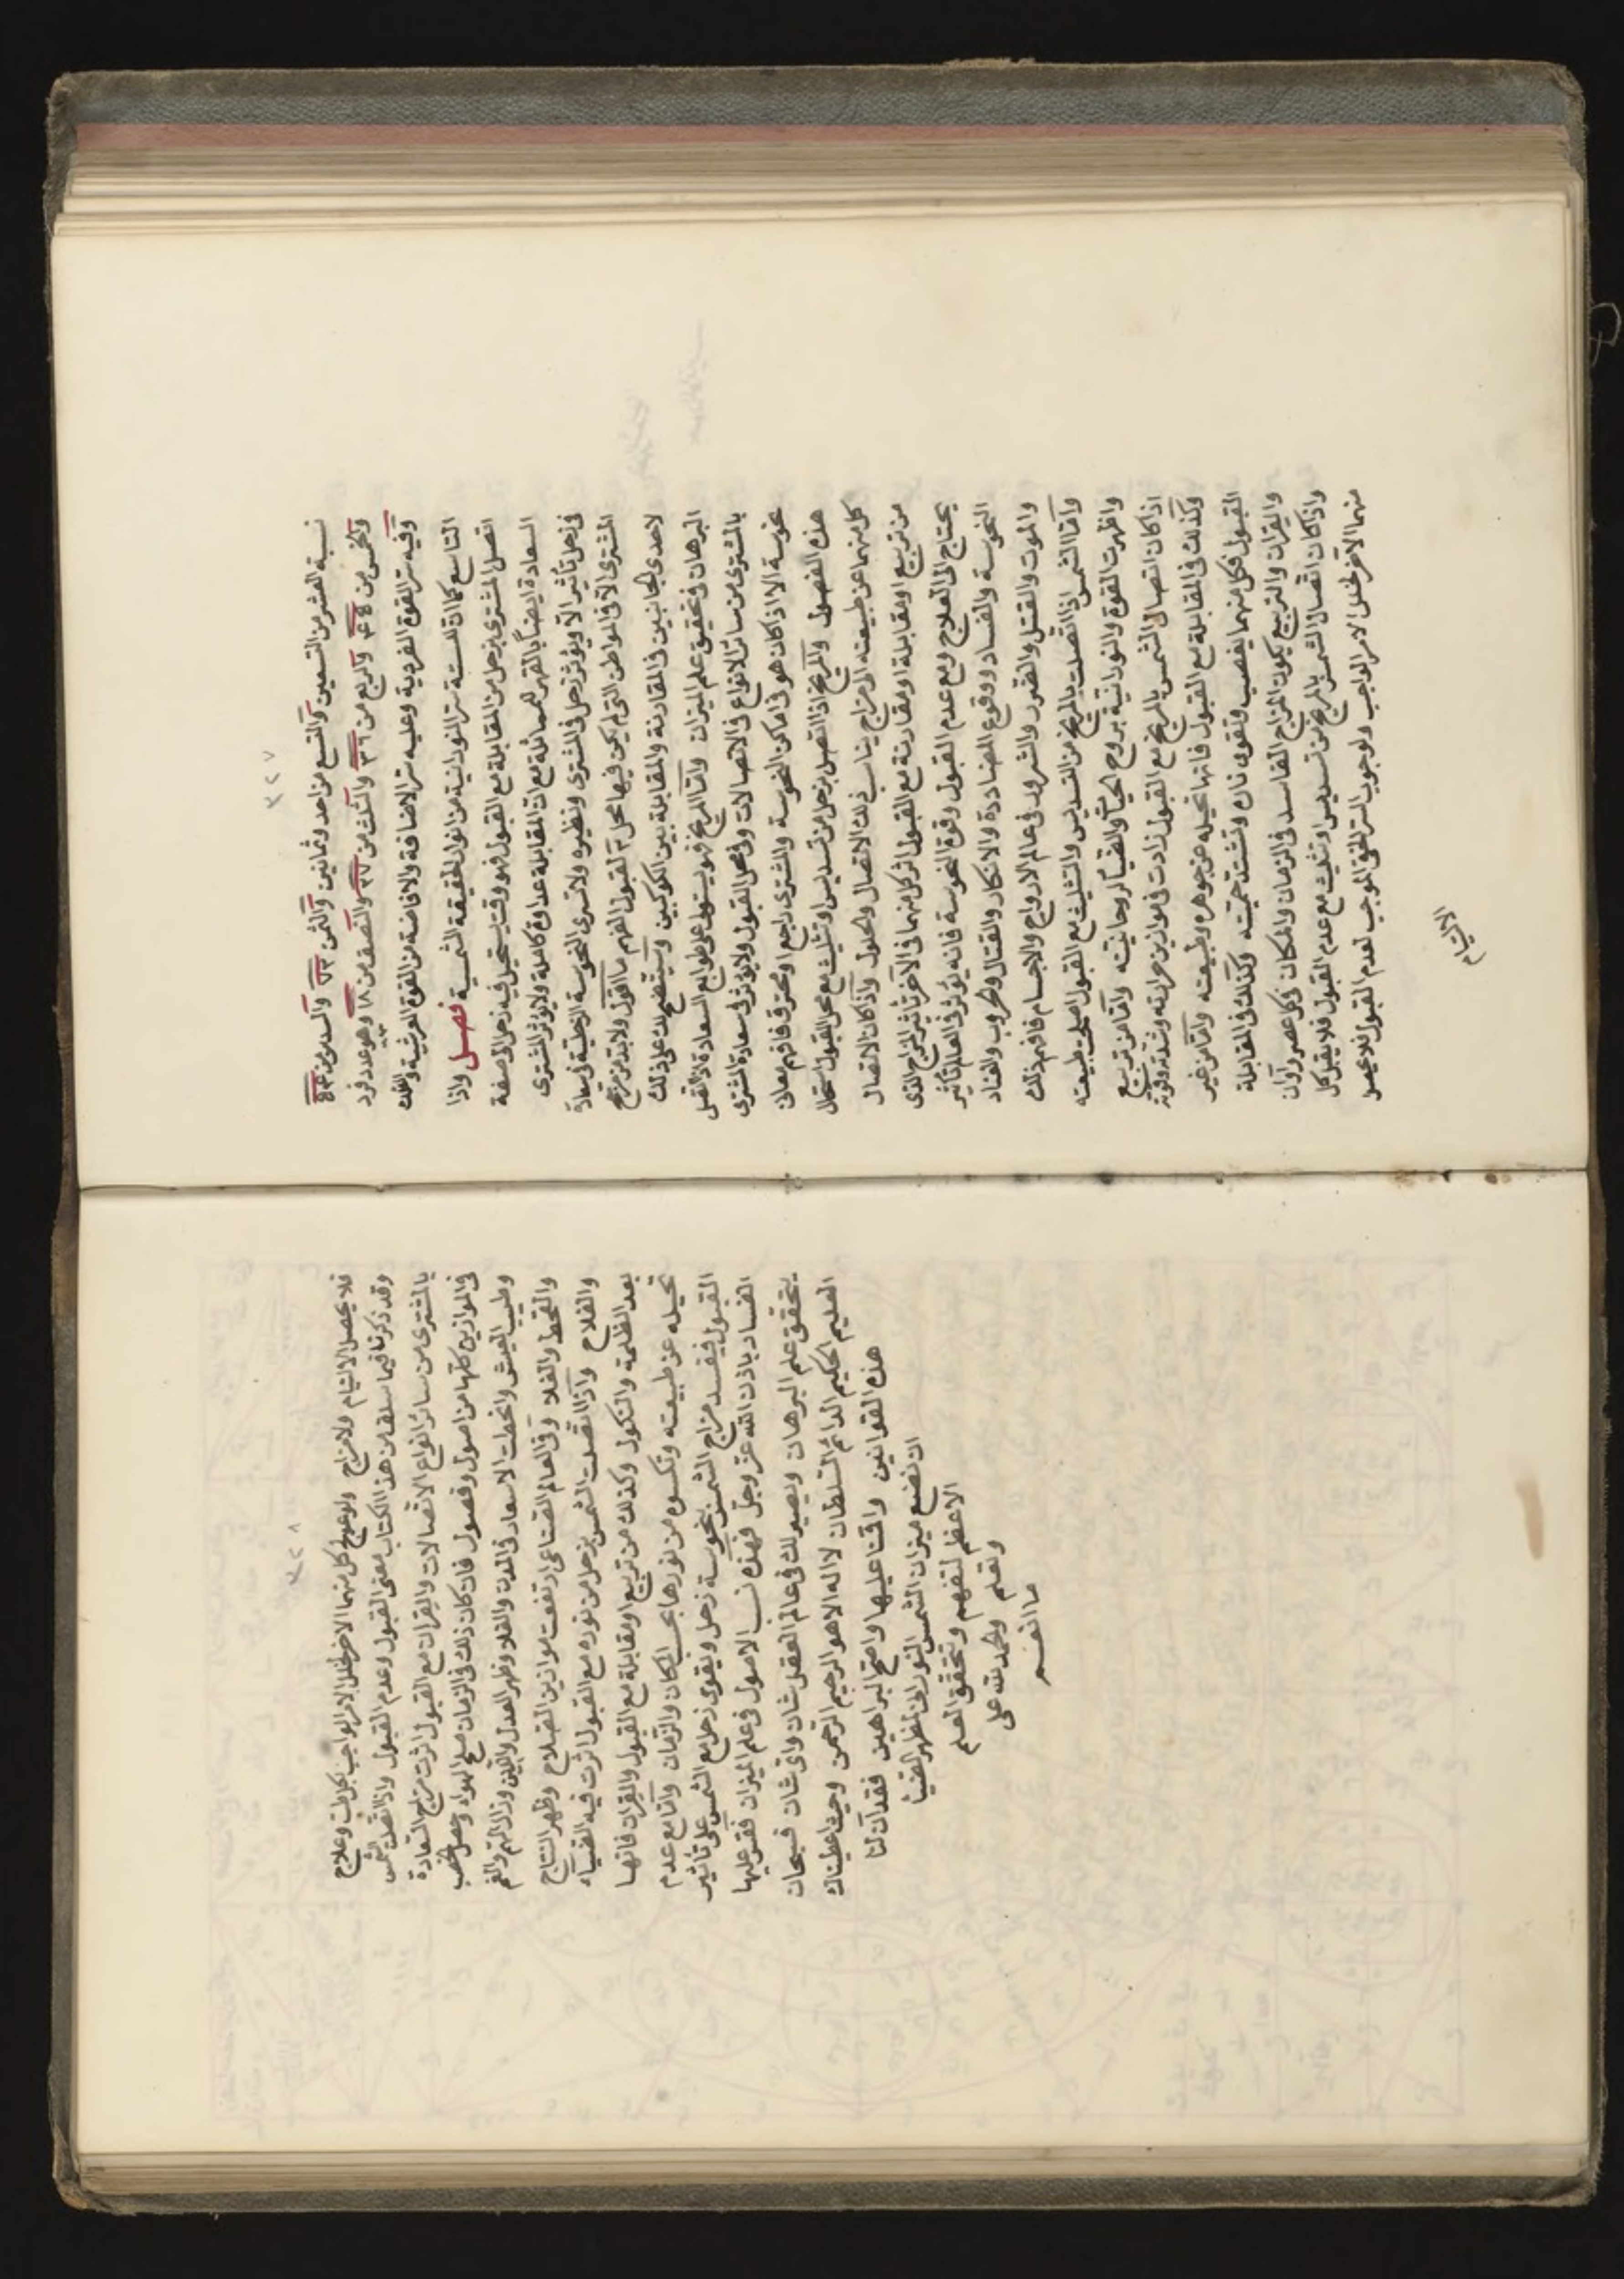 ٣٢٧
نسبة العشر من التسعين والتسع من احد وثمانين والثمن ٧٢ والسدس من ٥٤
والخمس من ٤٥ والربع من ٣٦ والثلث من ٢٧ والنصف من ١٨ وهو عدد فرد
وفيه سر القوة الفردية وعليه سر الاضافة والافاضة من القوة العرشية والفلك
التاسع كما ان للستة سر النورانية من انوار الحقيقة الشمسية فصل واذا
اتصل المشترى بزحل من المقابلة مع القبول فهو وقت يستحيل فيه زحل الى صفة
السعادة ايضاً بالقهر للمماثلة مع ان المقابلة عداوة كاملة ولا يؤثر المشترى
فى زحل تأثير الا ويؤثر زحل فى المشترى ونظيره ولا تسرى النحوسة الزحلية فى سعادة
المشترى الا فى المواطن التى لم يكن فيها محل القبول افهم ما اقول ولا بد من مرجح
لاحدى الجانبين فى المقارنة والمقابلة بين الكوكبين وسيتضح لك على ذلك
البرهان فى تحقيق علم الميزان واما المريخ فهو يستولى على طوابع السعادة اذا اتصل
بالمشترى من سائر الانواع فى الاتصالات وفى محل القبول ولا يؤثر فى سعادة المشترى
نحوسة الا اذا كان هو فى اماكن النحوسة والمشترى راجع او محترق فافهم معانى
هذه الفصول والمريخ اذا اتصل بزحل من تسديس او تثليث مع محل القبول استحال
كل منهما عن طبيعته الى مزاج يناسب ذلك الاتصال والحلول واذا كان الاتصال
من تربيع او مقابلة او مقارنة مع القبول اثر كل منهما فى الآخر تأثير المزاج الذى
يحتاج الى العلاج ومع عدم القبول وقوة النحوسة فانه يؤثر فى العالم تأثير
النحوسة والفساد ووقوع المضاددة والانكاد والقتال والحروب والفناد
والموت والقتل والفقر والشرور فى عالم الارواح والاجسام فافهم ذلك
واما الشمس اذا اتصلت بالمريخ من التسديس والتثليث مع القبول اصلحت طبيعته
واظهرت القوة والنورانية بروح الحياة والضياء لروحانيته واما من تربيع
اذا كان اتصال الشمس بالمريخ مع القبول زادت فى موازين حرارته وشدته وقوته
وكذلك فى المقابلة مع القبول فانها تحيله عن جوهره وطبيعته واما من غير
القبول فكل منهما يغضب فتقوى ناره وتشتد حميته وكذلك فى المقابلة
والقران والتربيع يكون المزاج الفاسد فى الزمان والمكان فى كل عصر واوان
واذا كان اتصال الشمس بالمريخ من تسديس او تثليث مع عدم القبول فلا يقبل كل
منهما الآخر لخلل الامر الواجب ولوجوب السر الخفى الموجب لعدم القبول فلا يحصل
الالتيام
٣٢٨
فلا يحصل الالتيام ولا مزاج ولو عولج كل منهما الاخر لخلل الامر الواجب بكل طب وعلاج
وقد ذكرنا فيما سلف من هذا الكتاب معنى القبول وعدم القبول واذا اتصلت الشمس
بالمشترى من سائر انواع الاتصالات والقران مع القبول اثرت مزاج السعادة
فى الموازين كلها من اصول وفصول فان كان ذلك فى الزمان صلح الهواء وحصل الخصب
وطيب العيش وانحطت الاسعار فى المدن والفلا وظهر العدل واللين وزال الهم والغم
والقحط والغلا وفى العالم الصناعى ارتفعت موازين الصلاح وظهر النتاج
والفلاح واذا اتصلت الشمس بزحل من نوره مع القبول اثرت فيه الضياء
بعد الظلمة والنكول وكذلك من تربيع او مقابلة مع القبول والقران فانها
تحيله عن طبيعته وتكسوه من نورها بحسب المكان والزمان واما مع عدم
القبول فيفسد مزاج الشمس بنحوسة زحل ويقوى زحل مع الشمس على تأثير
الفساد باذن الله عز وجل فهذه نسب الاصول فى علم الميزان فقس عليها
يتحقق علم البرهان ويصير لك فى عالم العقل شان واى شان فسبحان
العليم الحكيم الدائم السلطان لا اله الا هو الرحيم الرحمن وحيث اعطيناك
هذه القوانين واقمنا عليها واضح البراهين فقد آن لنا
ان نضع ميزان الشمس النورانى لظهر الضيا
الاعظم لتفهم وتحقق العلم
وتعلم والحمد لله على
ما انعم